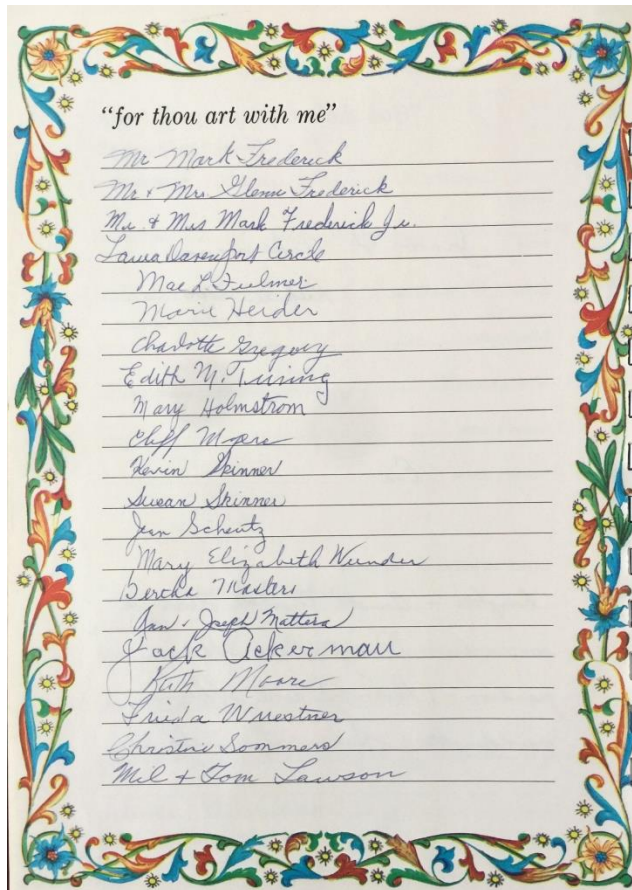 “for thou art with me”
Mr Mark Frederick
Mr + Mrs Glenn Frederick
Mr. + Mrs Mark Frederick Jr.
Laura Davenport Circle
Mae L. Fulmer
Marie Heider
Charlotte Gregory
Edith M. Tuning
Mary Holmstrom
Cliff Myers
Kevin Skinner
Susan Skinner
Jean Scheutz
Mary Elizabeth Wunder
Bertha Masters
Jan + Joseph Mattera
Jack Ackerman
Ruth Moore
Frieda Wuestner
Christine Sommers
Mil + Tom Lawson